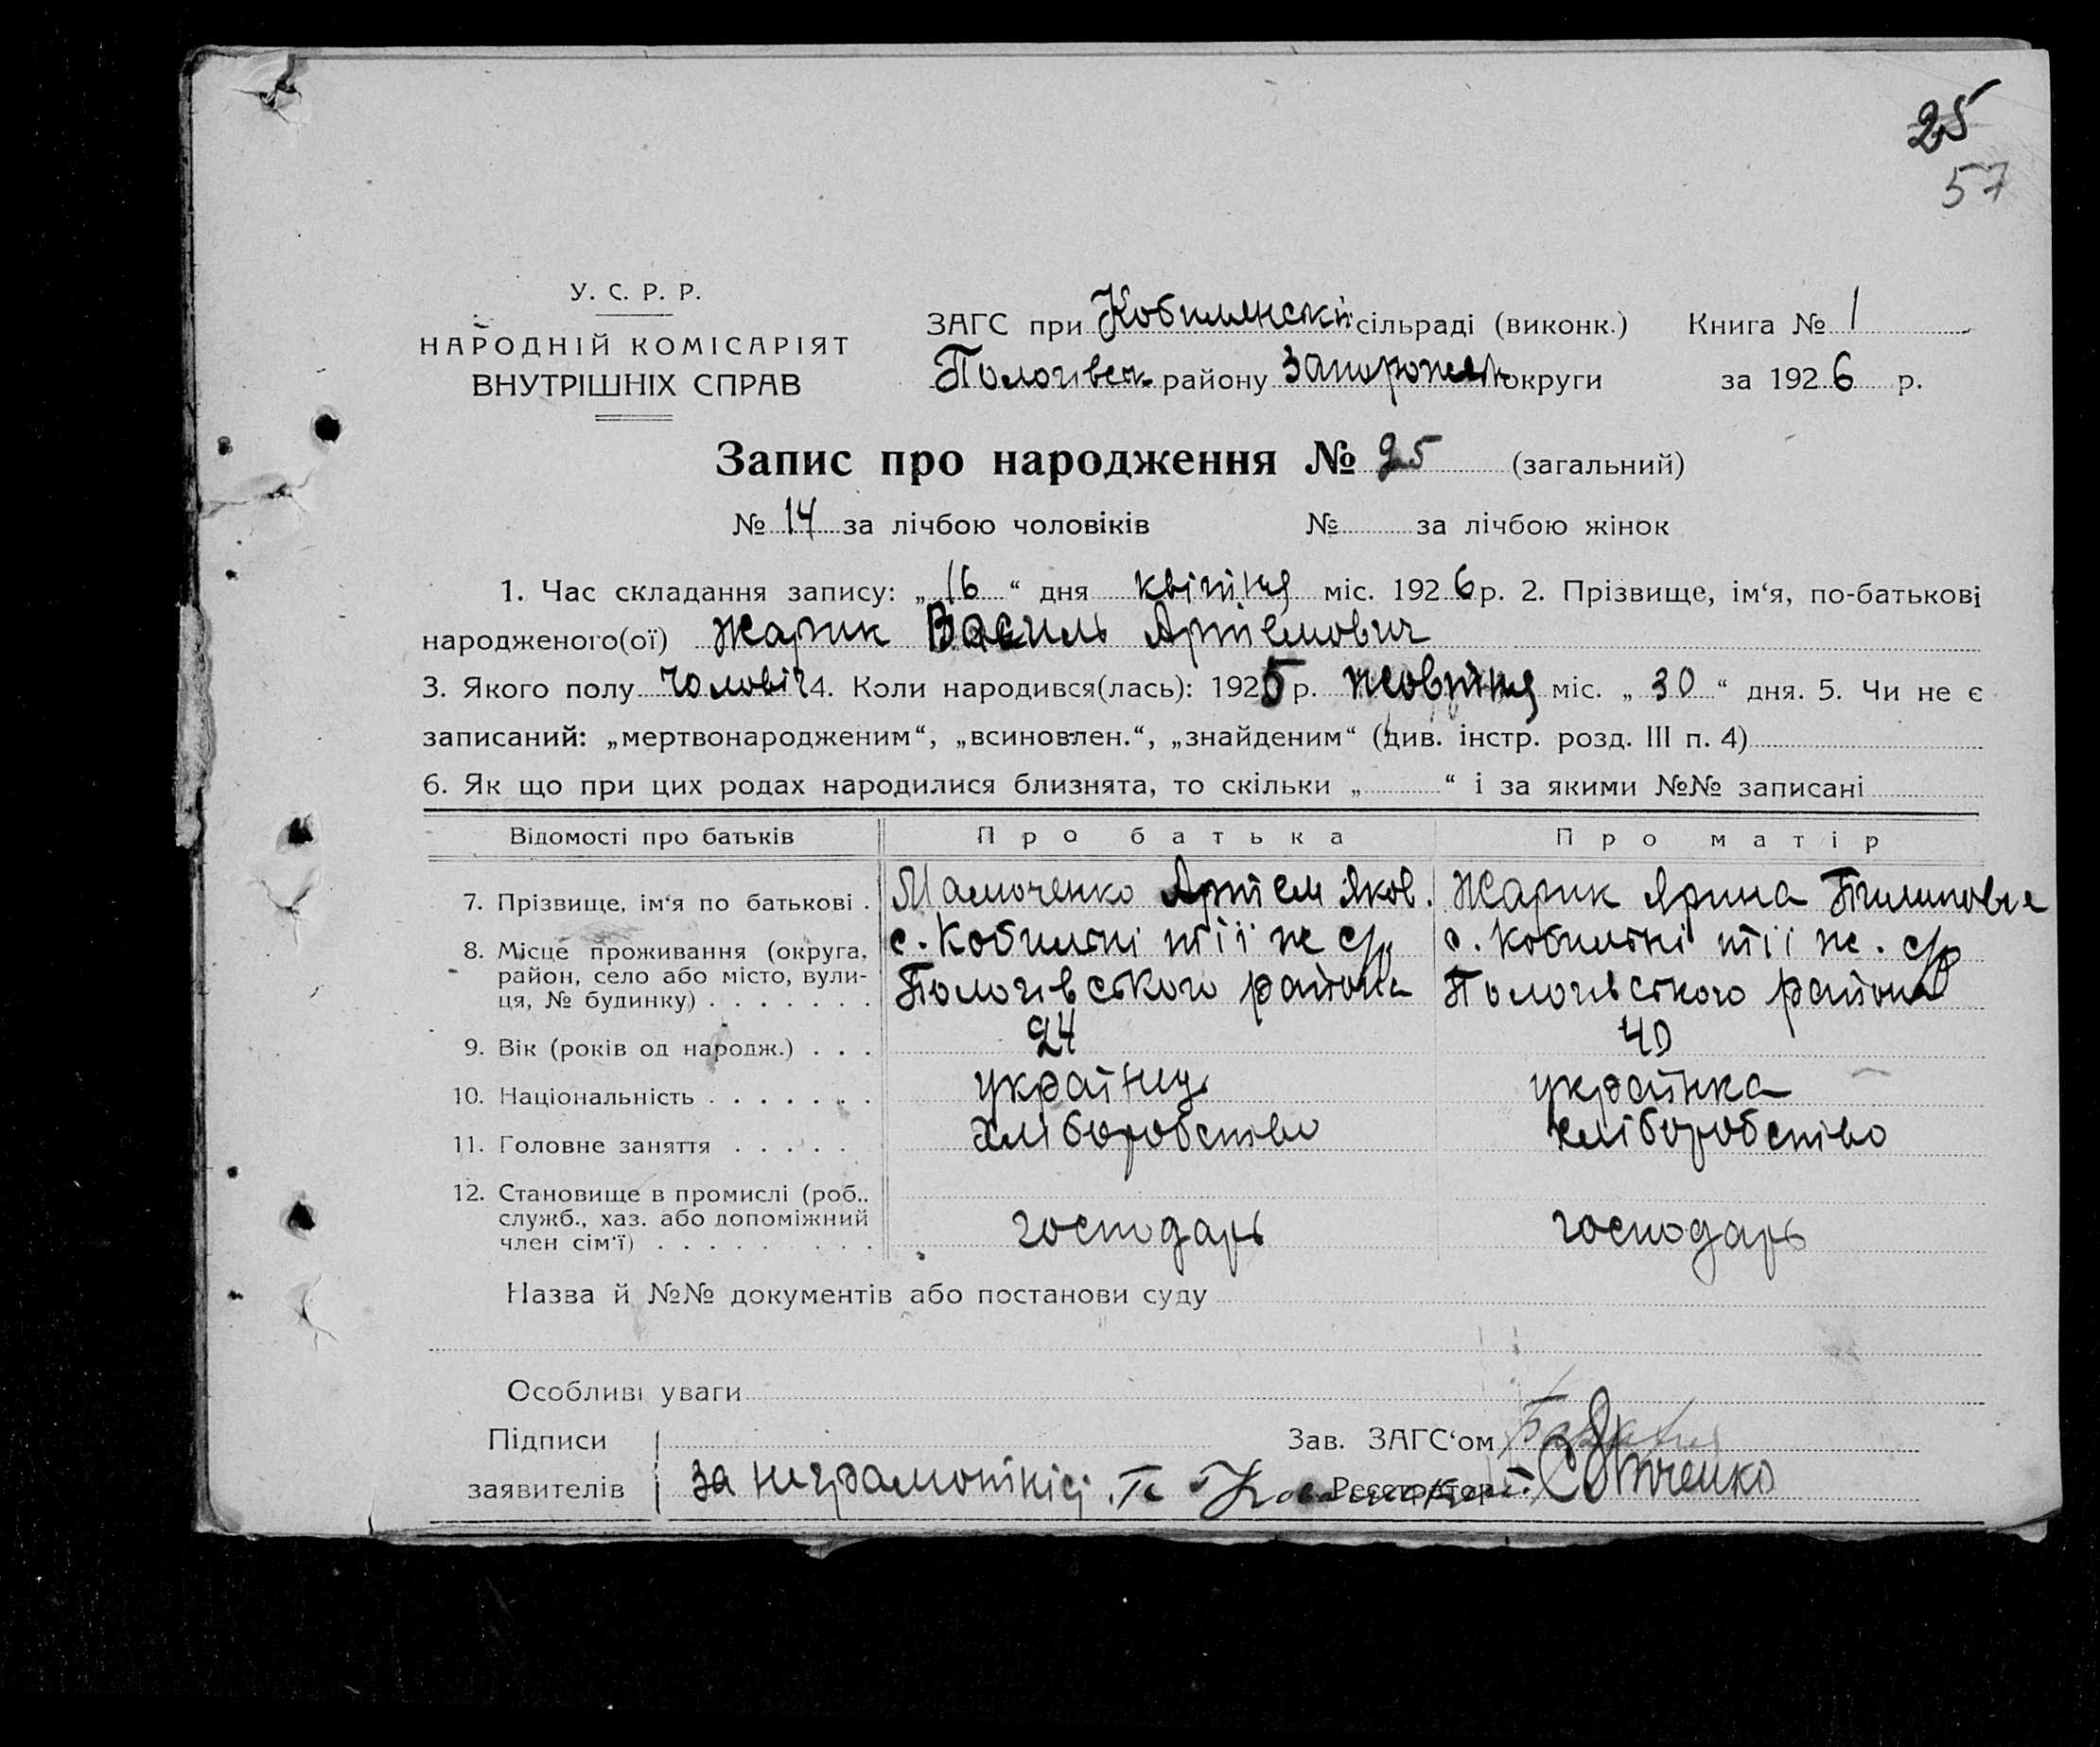 25
57
У. С. Р. Р.
НАРОДНІЙ КОМІСАРІЯТ
ВНУТРІШНІХ СПРАВ
ЗАГС при Кобилянській сільраді (виконк.) Книга № 1
Пологівськ. району Запорожськ округи за 1926 р.
Запис про народження № 25 (загальний)
№ 14 за лічбою чоловіків № за лічбою жінок
1. Час складання запису: „16“ дня квітня міс. 1926 р. 2. Прізвище, ім‘я, по-батькові
народженого(ої) Жарик Василь Артемович
3. Якого полу чоловіч 4. Коли народився(лась): 1925 р. жовтня міс. „30“ дня. 5. Чи не є
записаний: „мертвонародженим“, „всиновлен.“, „знайденим“ (див. інстр. розд. III п. 4)
6. Як що при цих родах народилися близнята, то скільки „ “ і за якими №№ записані
Відомості про батьків Про батька Про матір
7. Прізвище, ім‘я по батькові . Мамоченко Артем Яков. Жарик Ярина Пилиповна
8. Місце проживання (округа, район, село або місто, вулиця, № будинку) с. Кобиляні тії ж с/р с. Кобиляні тії ж. с/р
Пологівського района Пологівського района
9. Вік (років од народж.) . . . 24 40
10. Національність . . . . . . . українць українка
11. Головне заняття . . . . . хліборобство хліборобство
12. Становище в промислі (роб.,
служб., хаз. або допоміжний
член сім‘ї) . . . . . . . . . господарь господарь
Назва й №№ документів або постанови суду
Особливі уваги
Підписи Зав. ЗАГС‘ом
заявителів за неграмотністі Реєстратор